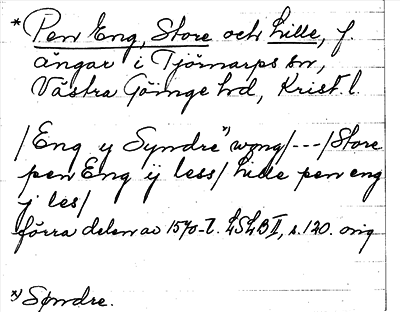 * Pen Eng, Store och Lille, f.
ängar i Tjörnarps sn,
Västra Göinge hd, Krist. l.
/Eng y Syndre" wong/---/Store
pen Eng ij less/ Lide pen eng
j les/
förra delen av 1570-t. LSLB II, s. 120. orig
*) Søndre.